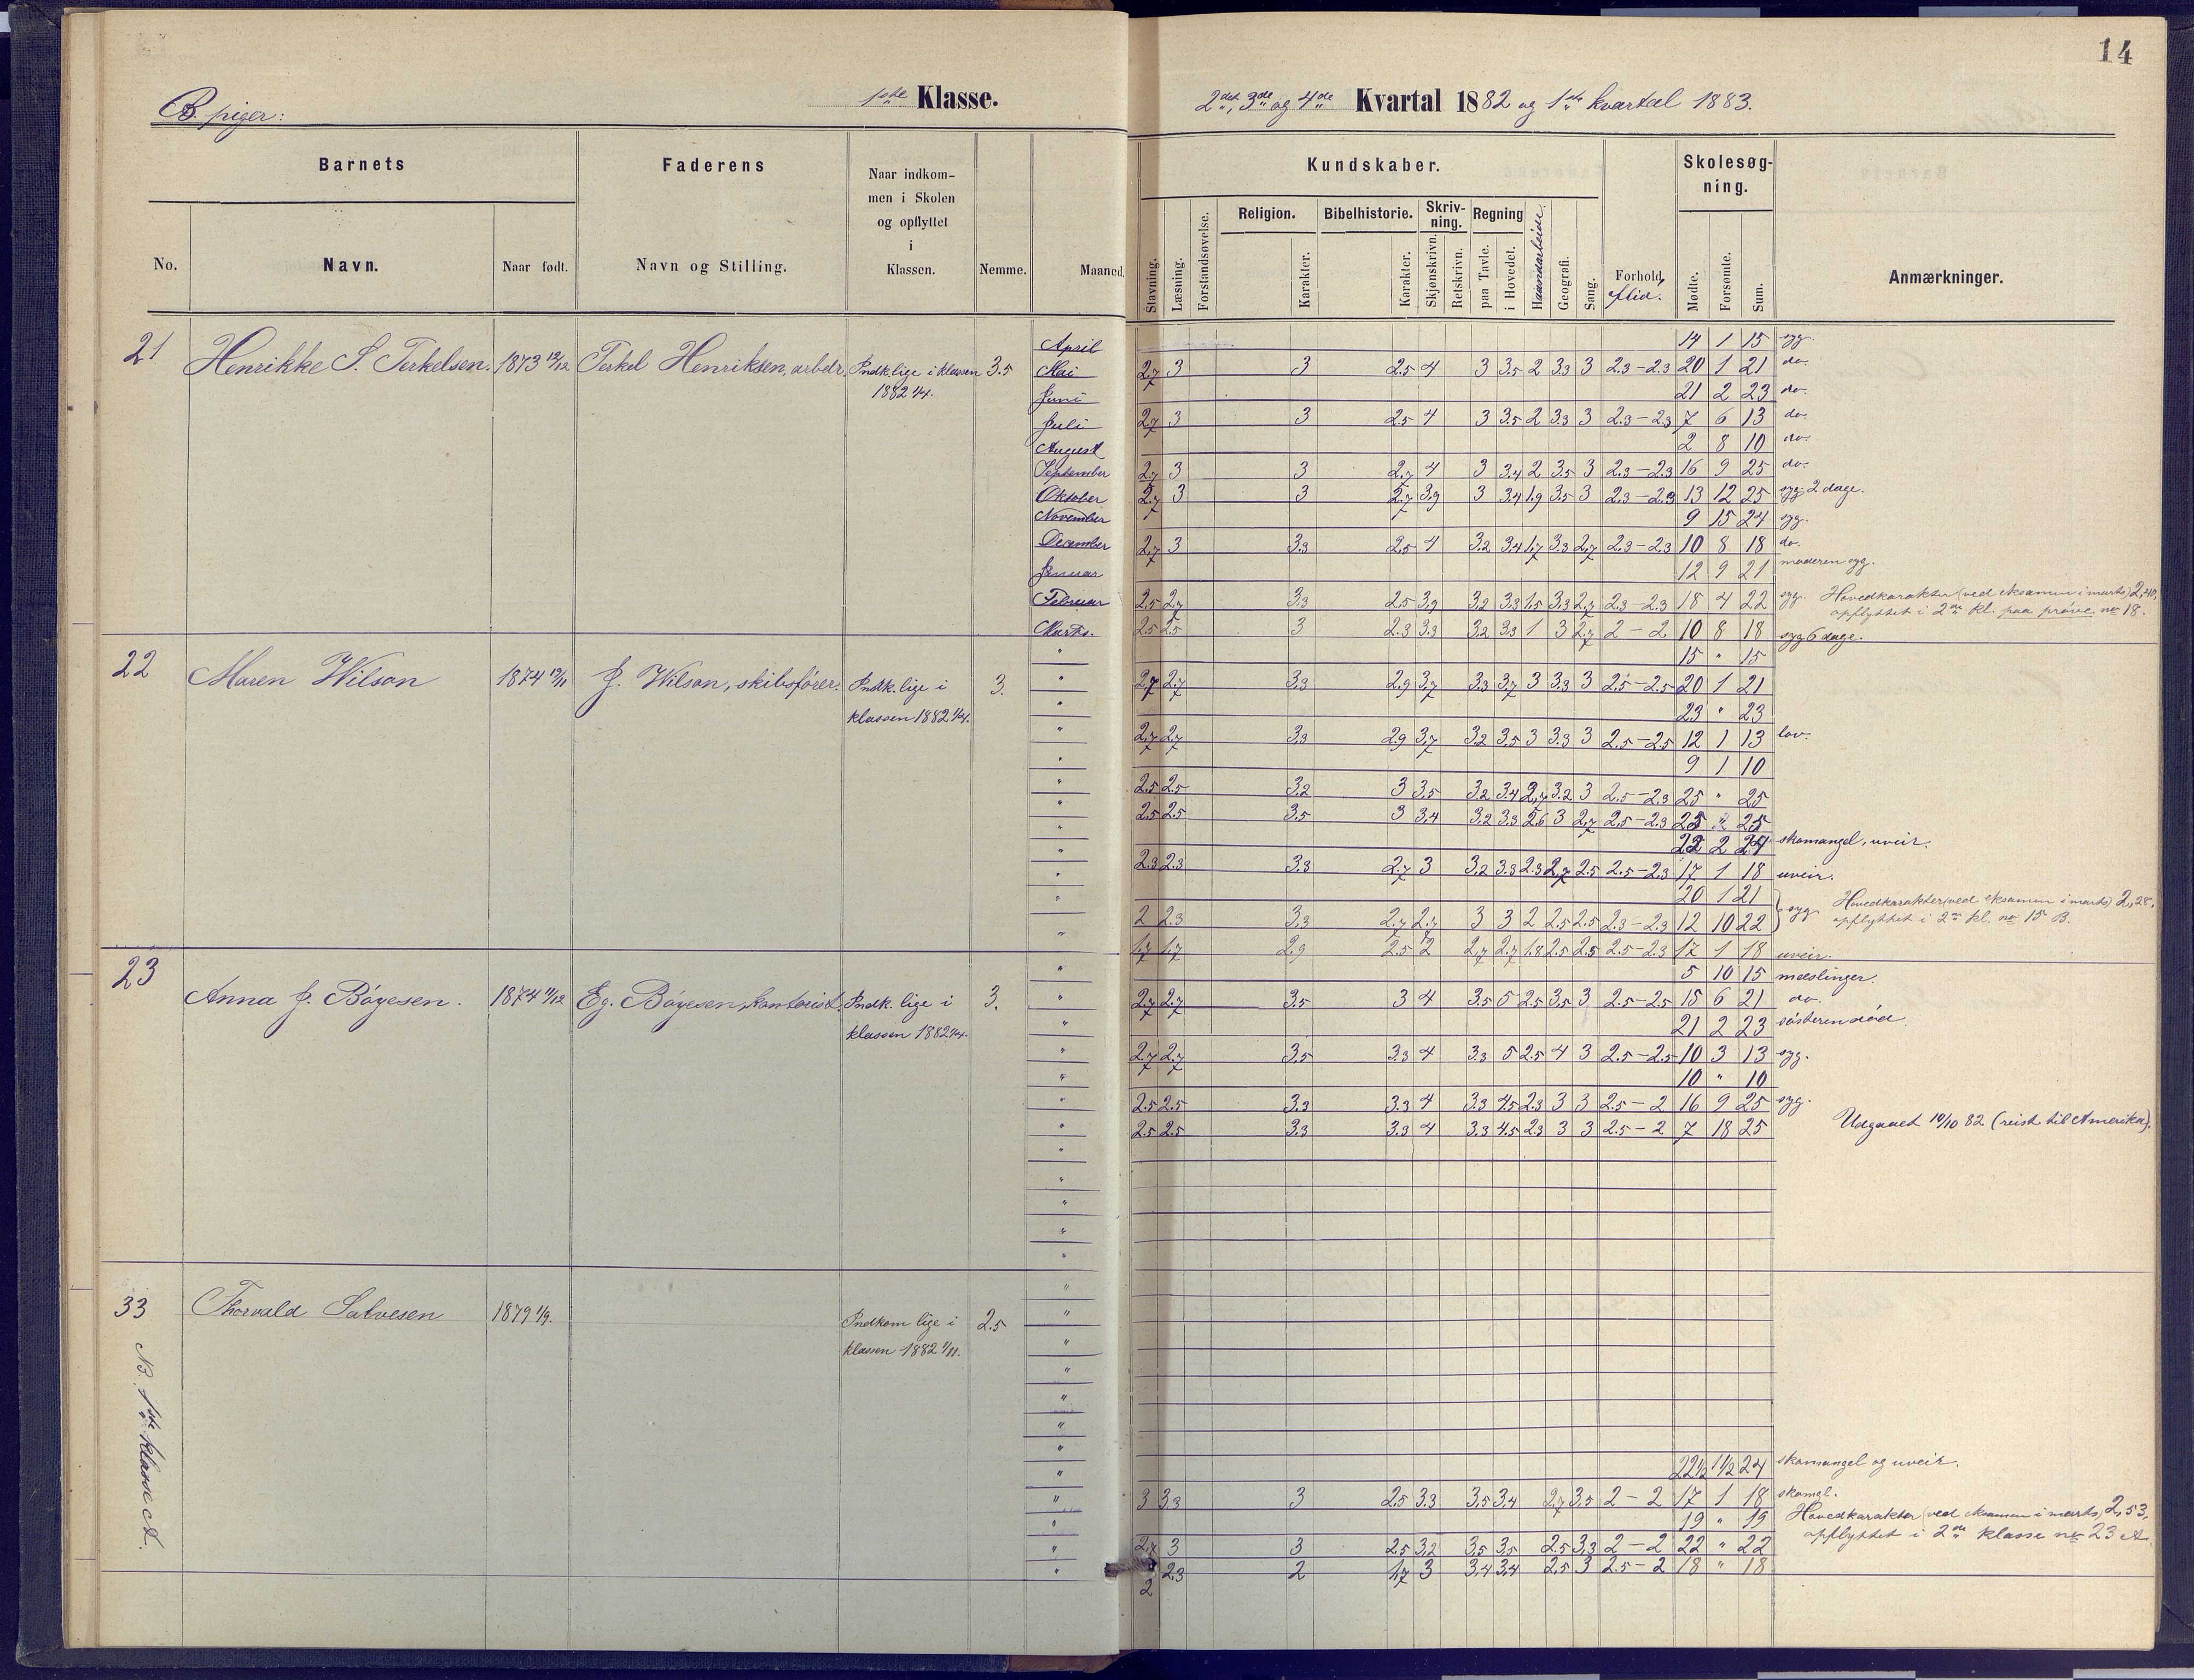 14
B. piger:
1ste Klasse.
2det, 3de og 4de Kvartal 1882 og 1ste kvartal 1883.
Barnets
Faderens
Naar indkom-
men i Skolen
og opflyttet
i
Klassen.
Kundskaber.
Skolesøg-
ning.
No.
Navn.
Naar født.
Navn og Stilling.
Nemme.
Maaned.
Stavning.
Læsning.
Forstandsøvelse.
Religion.
Karakter.
Bibelhistorie.
Karakter.
Skriv-
ning.
Skjønskrivn.
Retskrivn.
Regning
paa Tavle.
i Hovedet.
Haandarbeider.
Geografi.
Sang.
Forhold,
flid.
Mødte.
Forsømte.
Sum.
Anmærkninger.
21 Henrikke S. Terkelsen. 1873 12/12 Terkel Henriksen, arbeidr. Indk. lige i klassen 3.5
1882 1/4.
April 14 1 15 syg.
Mai 2.7 3 3 2.5 4 3 3.5 2 3.3 3 2.3-2.3 20 1 21 do.
Juni 21 2 23 do.
Juli 2.7 3 3 2.5 4 3 3.5 2 3.3 3 2.3-2.3 7 6 13 do.
August 2 8 10 do.
September 2.7 3 3 2.7 4 3 3.4 2 3.5 3 2.3-2.3 16 9 25 do.
Oktober 2.7 3 3 2.7 3.9 3 3.4 1.9 3.5 3 2.3-2.3 13 12 25 syg. 2 dage.
November 9 15 24 syg.
December 2.7 3 3.3 2.5 4 3.2 3.4 1.7 3.3 2.7 2.3-2.3 10 8 18 do.
Januar 12 9 21 moderen syg.
Februar 2.5 2.7 3.3 2.5 3.9 3.2 3.3 1.5 3.3 2.7 2.3-2.3 18 4 22 syg. Hovedkarakter (ved eksamen i marts) 2,40,
opflyttet i 2den kl. paa prøve no 18.
Marts. 2.5 2.5 3 2.3 3.3 3.2 3.3 1 3 2.7 2-2 10 8 18 syg 6 dage.
22 Maren Wilson 1874 J. Wilson, skibsfører. Indk. lige i 3.
klassen 1882 1/4.
" 15 " 15
" 2.7 2.7 3.3 2.9 3.7 3.3 3.7 3 3.3 3 2.5-2.5 20 1 21
" 23 " 23
" 2.7 2.7 3.3 2.9 3.7 3.2 3.5 3 3.3 3 2.5-2.5 12 1 13 lov.
" 9 1 10
" 2.5 2.5 3.2 3 3.5 3.2 3.4 2.7 3.2 3 2.5-2.3 25 " 25
" 2.5 2.5 3.5 3 3.4 3.2 3.3 2.6 3 2.7 2.5-2.3 25 " 25
" 22 2 24 skomangel, uveir.
" 2.3 2.3 3.3 2.7 3 3.2 3.3 2.3 2.7 2.5 2.5-2.3 17 1 18 uveir.
" 20 1 21
" 2 2.3 3.3 2.7 2.7 3 3 2 2.5 2.5 2.3-2.3 12 10 22 syg. Hovedkarakter (ved eksamen i marts) 2,28,
opflyttet i 2den kl. no 15 B.
" 1.7 1.7 2.9 2.5 2 2.7 2.7 1.8 2.5 2.5 2.5-2.3 17 1 18 uveir.
23 Anna J. Bøyesen. 1874 Eg. Bøyesen, kontorist. Indk. lige i 3.
klassen 1882 1/4.
" 5 10 15 mæslinger.
" 2.7 2.7 3.5 3 4 3.5 5 2.5 3.5 3 2.5-2.5 15 6 21 do.
" 21 2 23 søsteren død.
" 2.7 2.7 3.5 3.3 4 3.3 5 2.5 4 3 2.5-2.5 10 3 13 syg.
" 10 " 10
" 2.5 2.5 3.3 3.3 4 3.3 4.5 2.3 3 3 2.5-2 16 9 25 syg.
" 2.5 2.5 3.3 3.3 4 3.3 4.5 2.3 3 3 2.5-2 7 18 25 Udgaaet 10/10 82 (reist til Amerika).
"
"
"
"
"
33 Thorvald Salvesen 1879 1/9. Indkom lige i 2.5
klassen 1882 1/11.
NB. 1ste klasse A.
"
"
"
"
"
"
"
" 22 1/2 1 1/2 24 skomangel og uveir.
" 3 3.3 3 2.5 3.3 3.5 3.4 2.7 3.5 2-2 17 1 18 skomgl.
" 19 " 19 Hovedkarakter (ved eksamen i marts) 2,53,
opflyttet i 2den klasse no 23 A.
" 2.7 3 3 2.5 3.2 3.5 3.5 2.5 3.3 2-2 22 " 22
" 2 2.3 2 1.7 3 3.4 3.4 2.5 3 2.5-2 18 " 18